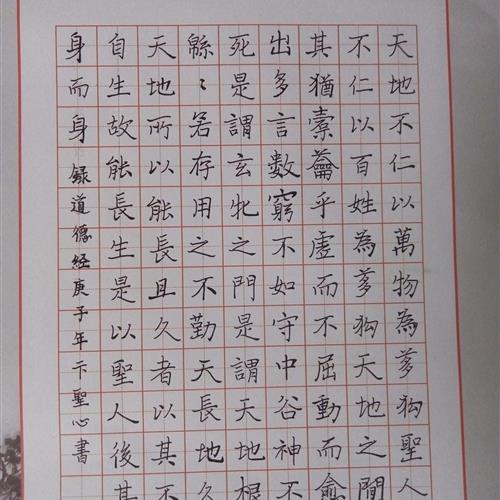 天地不仁以萬物為芻狗聖人
不仁以百姓為芻狗天地之間
其猶橐籥乎虛而不屈動而愈
出多言數窮不如守中谷神不
死是謂玄牝之門是謂天地根
緜〻若存用之不勤天長地久
天地所以能長且久者以其不
自生故能長生是以聖人後其
身而身 録道德經庚子年卞聖心書